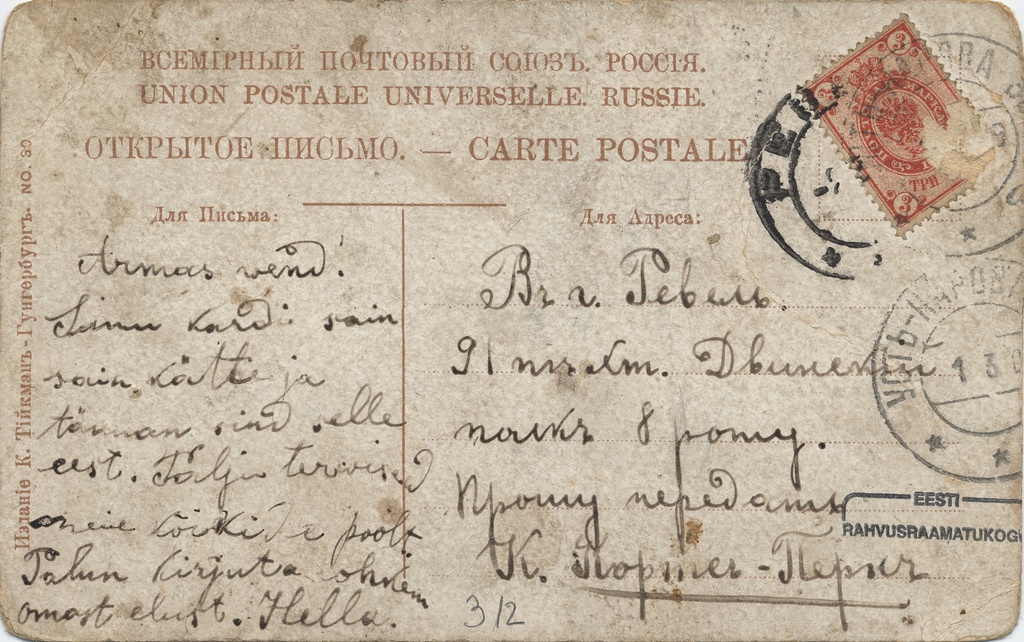 ВСЕМІРНЫЙ ПОЧТОВЫЙ СОЮЗЪ. РОССІЯ.
UNION POSTALE UNIVERSELLE. RUSSIE.
ОТКРЫТОЕ ПИСЬМО. — CARTE POSTALE
Для Письма:
Для Адреса:
Armas vend!
Sinu kardi sain
sain kätte ja
tännan sind selle
eest. Palju tervised
meie kõikide poolt
Palun kirjuta ohkem
omast elust. Hella.
Въ г. Ревель.
91 пѣхт. Двинскій
полкъ 8 роту.
Прошу передать
К. Портсе-Перкъ
3/2
Изданіе К. Тійкманъ-Гунгербургъ. NO. 30
3
ТРИ
3
РЕВЕ
УСТЬ-НАРОВА
1 3 0
EESTI
RAHVUSRAAMATUKOGU